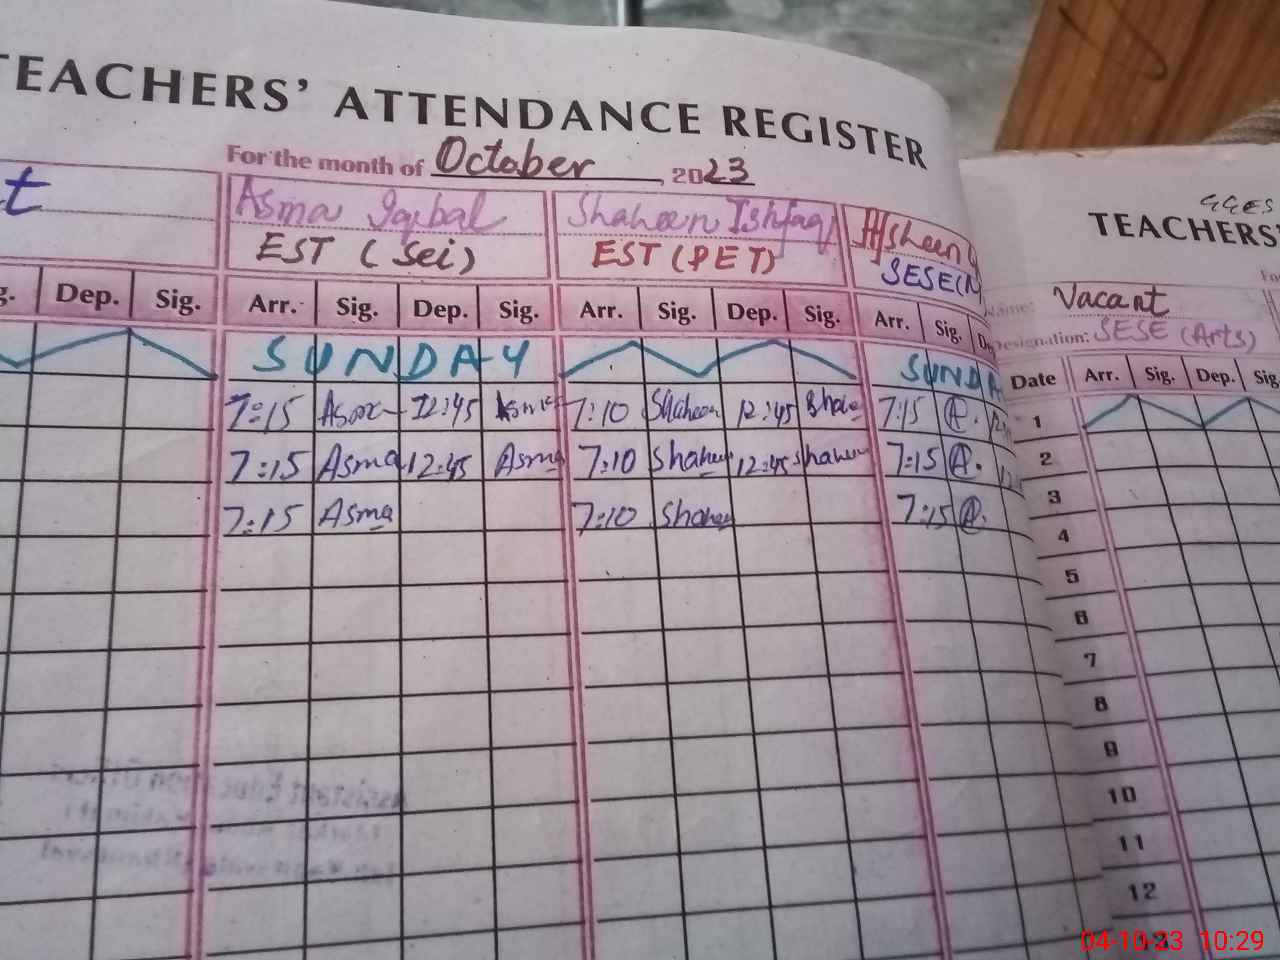 TEACHERS' ATTENDANCE REGISTER
For the month of October, 2023
t Asma Iqbal Shaheen Ishfaq Afsheen
EST (Sci) EST (PET) SESE(
Dep. Sig. Arr. Sig. Dep. Sig. Arr. Sig. Dep. Sig. Arr. Sig.
SUNDAY SUNDA
7:15 Asma 12:45 Asma 7:10 Shaheen 12:45 Shahe 7:15 A.
7:15 Asma 12:45 Asma 7:10 Shaheen 12:45 Shaheen 7:15 A.
7:15 Asma 7:10 Shaheen 7:15 A.
GGES
TEACHERS'
Name: Vacant
Designation: SESE (Arts)
Date Arr. Sig. Dep. Sig
1
2
3
4
5
6
7
8
9
10
11
12
04-10-23 10:29